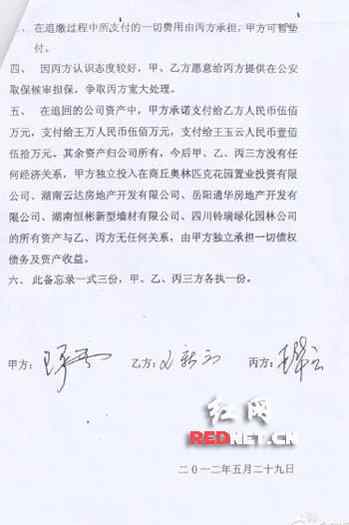 在追缴过程中所支付的一切费用由丙方承担，甲方可暂垫
付。
四、 因丙方认识态度较好，甲、乙方愿意给丙方提供在公安
取保候审担保，争取丙方宽大处理。
五、 在追回的公司资产中，甲方承诺支付给乙方人民币伍佰
万元，支付给王万人民币伍佰万元，支付给王玉云人民币壹佰
伍拾万元。其余资产归公司所有，今后甲、乙、丙三方没有任
何经济关系，甲方独立投入在商丘奥林匹克花园置业投资有
限公司、湖南云达房地产开发有限公司、岳阳通华房地产开发有
限公司、湖南恒彬新型墙材有限公司、四川铃瑞绿化园林公司
的所有资产与乙、丙方无任何关系，由甲方独立承担一切债权
债务及资产收益。
六、 此备忘录一式三份，甲、乙、丙三方各执一份。
甲方： 乙方： 丙方：
红网
REDNET.CN
二０一二年五月二十九日